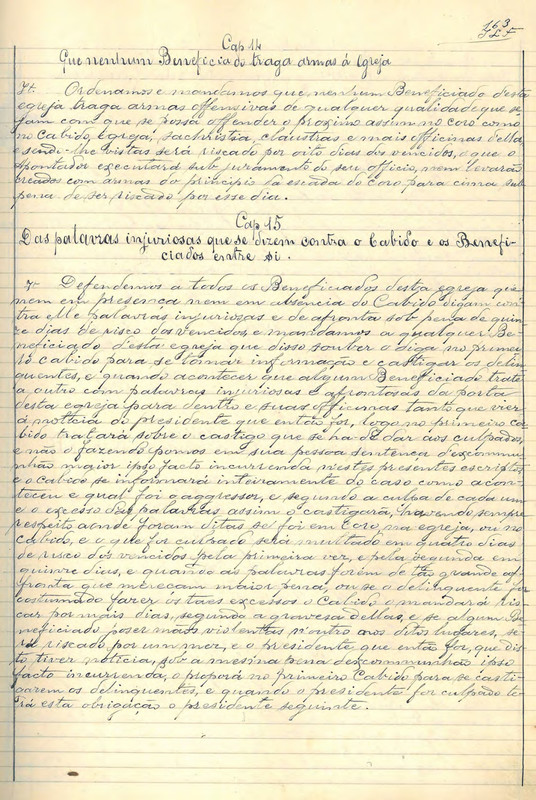 163
Cap 14
Que nenhum Beneficiado traga armas á Egreja
It. Ordenamos e mandamos que nenhum Beneficiado desta
egreja traga armas offensivas de qualquer qualidade que se-
jam com que se possa offender o proximo assim no coro como
no Cabido, Egreja, sachristia, claustras e mais officinas della,
e sendo-lhe vistas será riscado por oito dias dos vencidos, o que o
Apontador executará sub juramento do seu officio, nem levarão
creados com armas do principio da escada do coro para cima sub
pena de ser riscado por esse dia.
Cap 15
Das palavras injuriosas que se dizem contra o Cabido e os Benefi-
ciados entre si.
It. Defendemos a todos os Beneficiados desta egreja que
nem em presença nem em absencia do Cabido digam con-
tra elle palavras injuriosas e de afronta sob pena de quin-
ze dias de risco dos vencidos, e mandamos a qualquer Be-
neficiado desta egreja que disso souber o diga no primei-
ro cabido para se tomar informação e castigar os delin-
quentes, e quando acontecer que algum Beneficiado trate
a outro com palavras injuriosas e afrontosas da porta
desta egreja para dentro e suas officinas tanto que vier
á noticia do presidente que então for, logo no primeiro ca-
bido tratará sobre o castigo que se há de dar aos culpados,
e não o fazendo pomos em sua pessoa sentença d'excommu-
nhão maior ipso facto incurrenda nestes presentes escriptos
e o cabido se informará inteiramente do caso como acon-
teceu e qual foi o aggressor, e segundo a culpa de cada um
e o excesso das palavras assim o castigará, havendo sempre
respeito aonde foram ditas se foi em Coro, na egreja, ou no
cabido, e o que for culpado será multado em quatro dias
de risco dos vencidos pela primeira vez, e pela segunda em
quinze dias, e quando as palavras forem de tão grande af-
fronta que mereçam maior pena, ou se o delinquente for
costumado fazer os taes excessos o Cabido o mandará ris-
car por mais dias, segundo a graveza dellas, e se algum Be-
neficiado poser mãos violentas n'outro nos ditos lugares, se-
rá riscado por um mez, e o presidente que então for, que dis-
to tiver noticia, sob a mesma pena dexcommunhão ipso
facto incurrenda, o proporá no primeiro Cabido para se casti-
garem os delinquentes, e quando o presidente for culpado te-
rá esta obrigação o presidente seguinte.